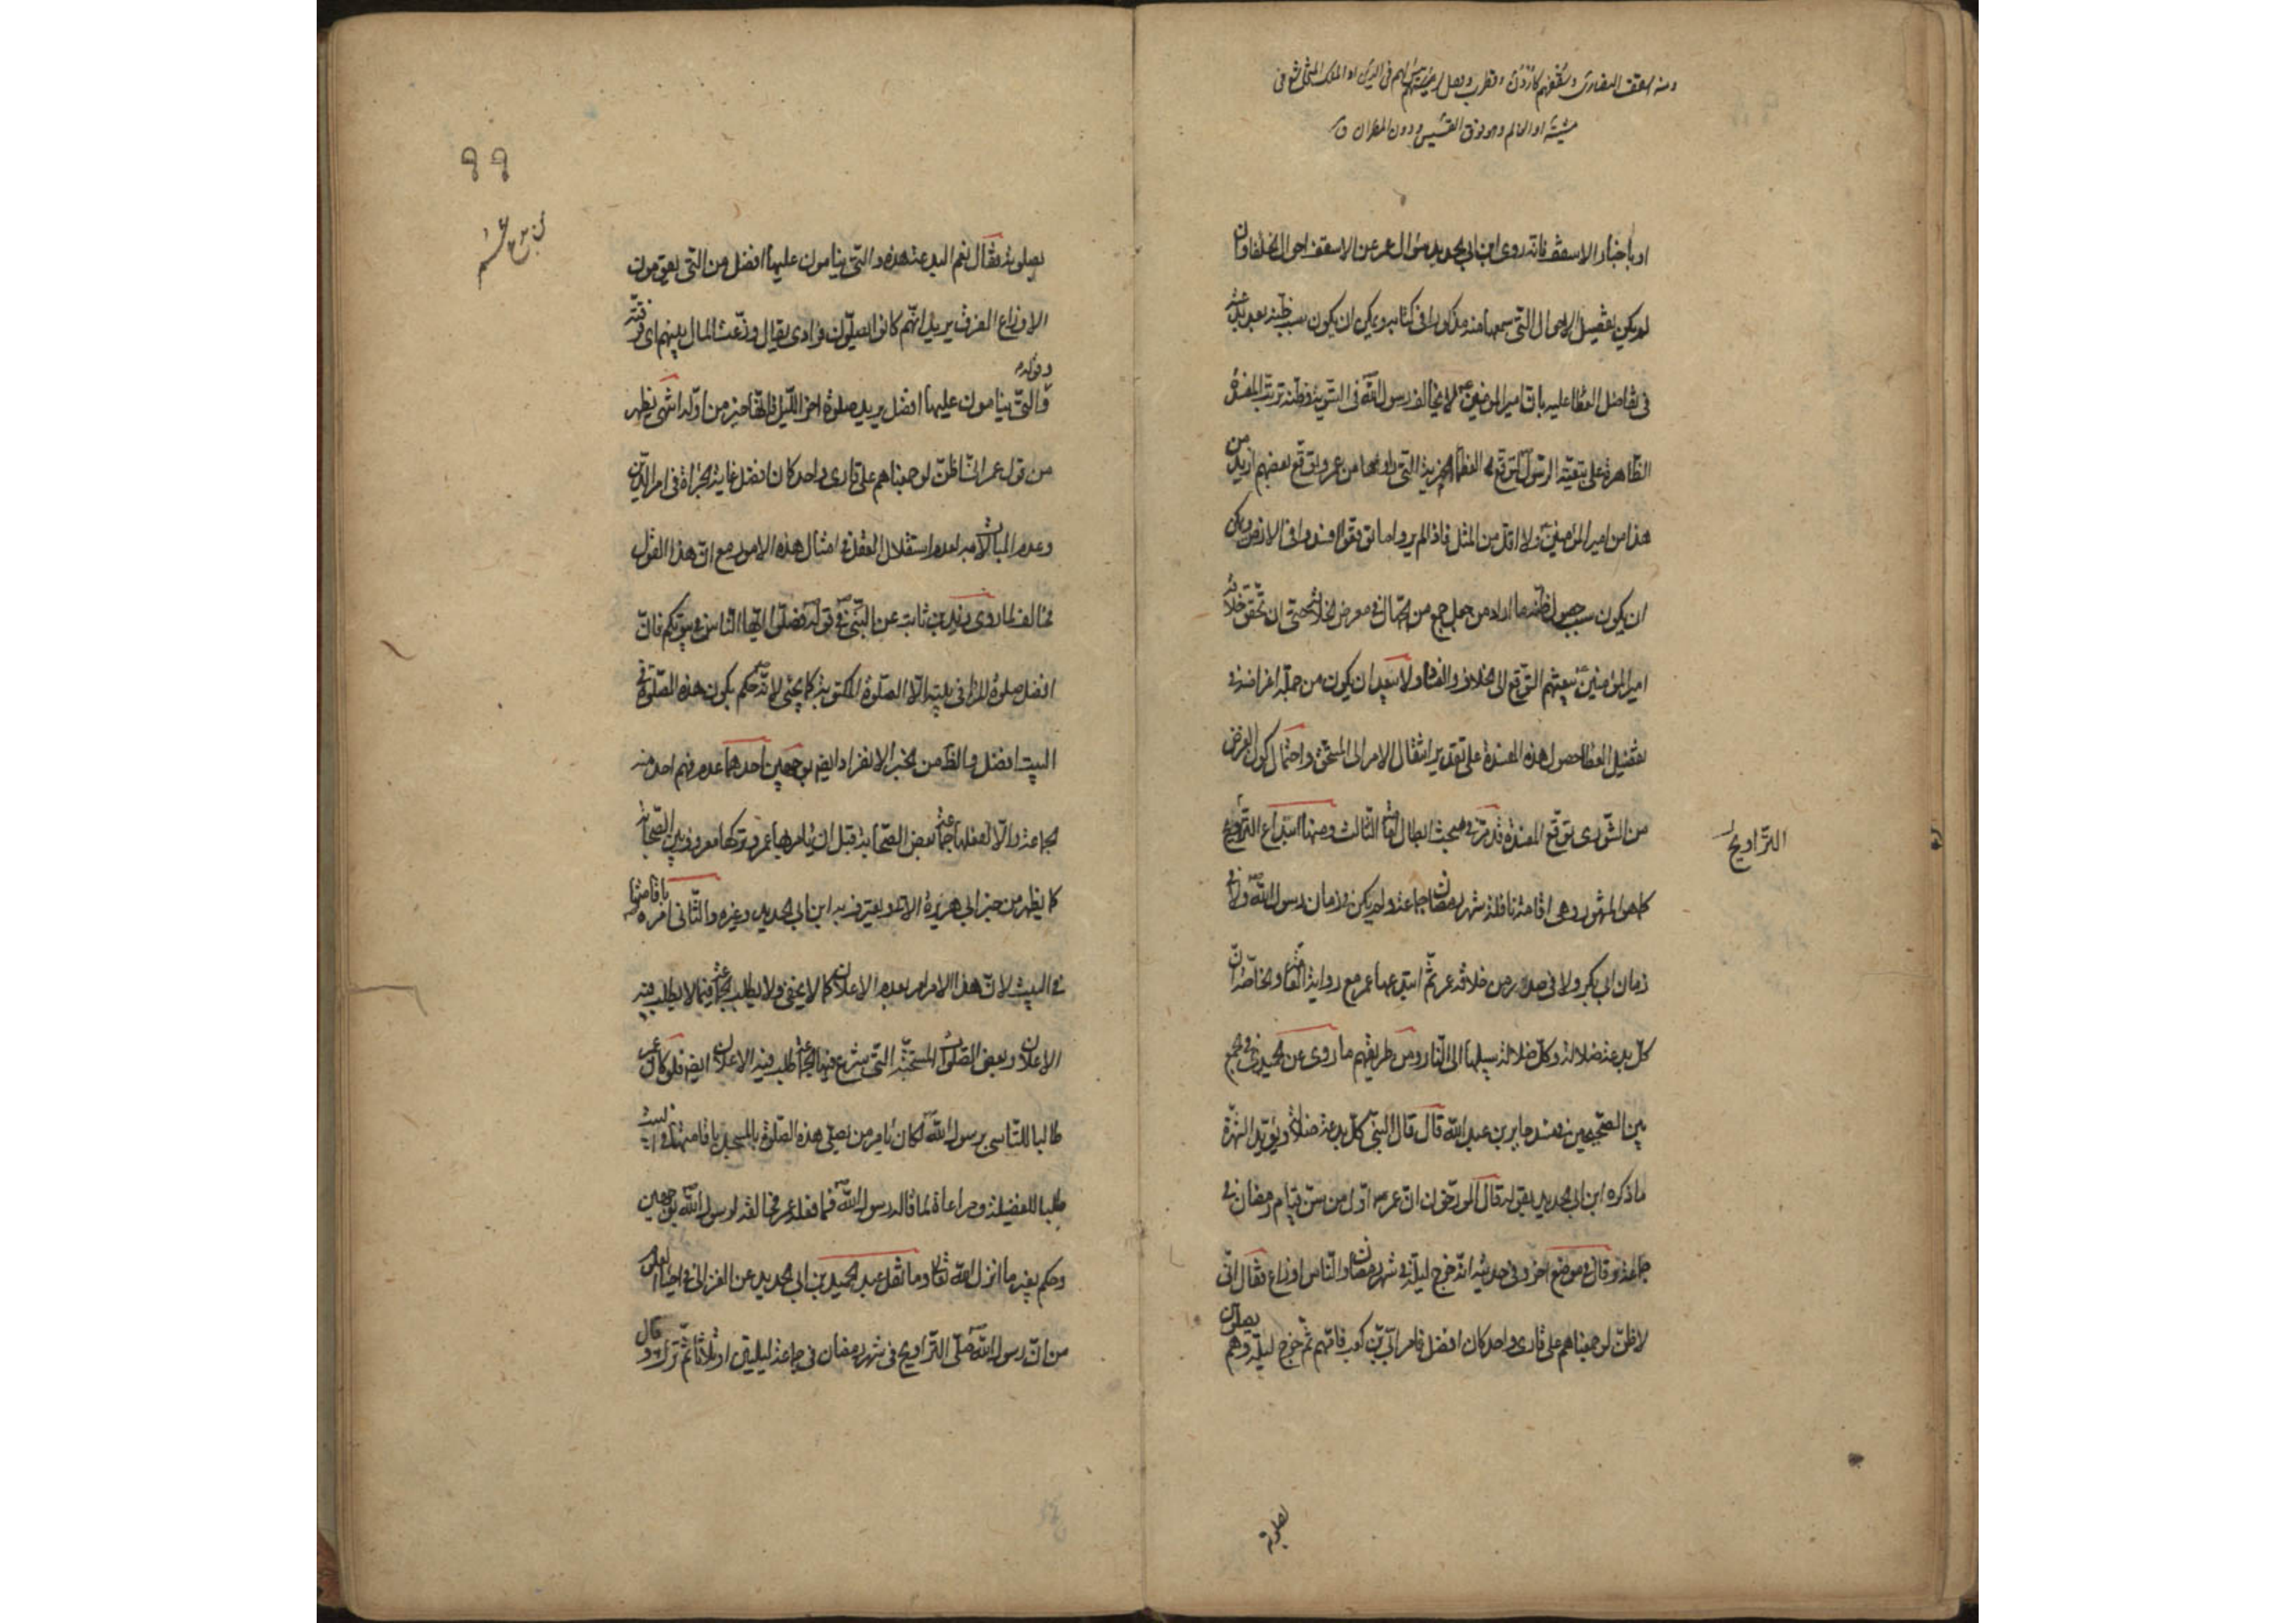 ومنه اسقف النصارى وسُقُفهم كأُرْدُنّ وقطرب وقفل لرئيس لهم في الدين او الملك المتخاشع في
مشيته او العالم وهو فوق القسيس ودون المطران ق
او باخبار الاسقف فانه روى ابن ابي الحديد سؤال عمر عن الاسقف احوال الخلفا وان
لم يكن تفصيل الاحوال التي سمعها منه مذكورا في كتابه ويمكن ان يكون سبب ظنه بعد
في تفاضل العطا عليه بان امير المؤمنين لا يخالف رسول الله في التسوية وظنه ترتب المفسدة
الظاهرة على بتعيته الرسول لتوقع العظماء المزية التي راوها من عمر وتوقع بعضهم ازيد من
هذا من امير المؤمنين ولا اقل من المثل فاذا لم يروا ما توقعوا افسدوا في الارض ويمكن
ان يكون سبب حصول ظنه ما اراد من جعل جمع من الجهال في معرض الخلافة حتى ان تحقق خلافة
امير المؤمنين يبعثهم التوقع الى الخلاف والفساد ولا يبعد ان يكون من جملة اغراضه في
تفضيل العطا حصول هذه المفسدة على تقدير انتقال الامر الى المستحق واحتمال كون الغرض
من الشورى توقع المفسدة قد مر في مبحث ابطال امامة الثالث ومنها ابتداع التراويح
التراويح
كما هو المشهور وهي اقامة نافلة شهر رمضان جماعة ولم يكن في زمان رسول الله ولا في
زمان ابي بكر ولا في صدر من خلافة عمر ثم ابتدعها عمر مع رواية العامة والخاصة ان
كل بدعة ضلالة وكل ضلالة سبيلها الى النار ومن طريقهم ما روى عن الحميدي في الجمع
بين الصحيحين في مسند جابر بن عبد الله قال قال النبي كل بدعة ضلالة ويؤيد الشهرة
ما ذكره ابن ابي الحديد بقوله قال المورخون ان عمر اول من سن قيام رمضان في
جماعة وقال في موضع اخر وفي حديثه انه خرج ليلة في شهر رمضان والناس اوزاع فقال اني
لاظن لو جمعناهم على قارئ واحد كان افضل فامر ابي بن كعب فامهم ثم خرج ليلة وهم يصلون
بصلوته
٩٩
يصلون بصلوته فقال نعم البدعة هذه والتي ينامون عليها افضل من التي يقومون
الاوزاع الفرق يريد انهم كانوا يصلون فرادى يقال وزعت المال بينهم اي فرقته
وقوله
والتي ينامون عليها افضل يريد صلوة اخر الليل فانها خير من اوله انتهى يظهر
من قول عمر اني اظن لو جمعناهم على قارئ واحد كان افضل غاية الجرأة في امر الدين
وعدم المبالات به لعدم استقلال العقل في امثال هذه الامور مع ان هذا القول
مخالف لما روى زيد بن ثابت عن النبي في قوله فصلوا ايها الناس في بيوتكم فان
افضل صلوة المرء في بيته الا الصلوة المكتوبة كما يجئ لانه حكم بكون هذه الصلوة في
البيت افضل والظ من الخبر الانفراد ايضا بوجهين احدهما عدم فهم احد منه
الجماعة والا لفعلها جماعة بعض الصحابة قبل ان يامر بها عمر وتركها معروف بين الصحابة
كما يظهر من خبر ابي هريرة الاتي ويعترف به ابن ابي الحديد وغيره والثاني امره باقامتها
في البيت لان هذا الامر امر بعدم الاعلان كما لا يخفى ولا يطلب الجماعة فيما لا يطلب فيه
الاعلان وبعض الصلوات المستحبة التي شرع فيها الجماعة طلب فيه الاعلان ايضا فلو كان عمر
طالبا للتاسي برسول الله لكان يامر من يصلي هذه الصلوة بالمسجد باقامتها في البيت
طلبا للفضيلة ومراعاة لما قاله رسول الله فما فعله عمر مخالفة لرسول الله بوجهين
وحكم بغير ما انزل الله تعالى وما نقل عبد الحميد بن ابي الحديد عن الغزالي في احياء العلوم
من ان رسول الله صلى التراويح في شهر رمضان في جماعة ليلتين او ثلاثا ثم ترك وقال